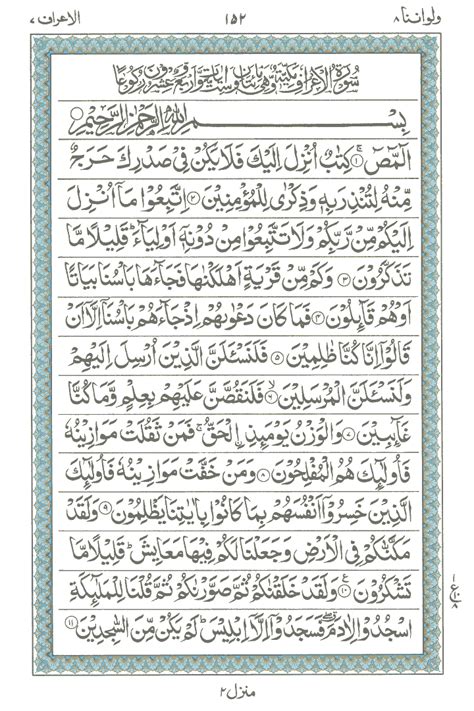 ولواننا ٨ ١٥٢ الاعراف ٧
سُوْرَةُ الْاَعْرَافِ مَكِّيَّةٌ وَّهِيَ مِائَتَانِ وَسِتُّ اٰيَاتٍ وَّاَرْبَعٌ وَّعِشْرُوْنَ رُكُوْعًا
بِسْمِ اللّٰهِ الرَّحْمٰنِ الرَّحِيْمِ
الٓمّٓصٓ ۚ﴿١﴾ كِتٰبٌ اُنْزِلَ اِلَيْكَ فَلَا يَكُنْ فِيْ صَدْرِكَ حَرَجٌ
مِّنْهُ لِتُنْذِرَ بِهٖ وَذِكْرٰى لِلْمُؤْمِنِيْنَ ﴿٢﴾ اِتَّبِعُوْا مَآ اُنْزِلَ
اِلَيْكُمْ مِّنْ رَّبِّكُمْ وَلَا تَتَّبِعُوْا مِنْ دُوْنِهٖٓ اَوْلِيَآءَ ؕ قَلِيْلًا مَّا
تَذَكَّرُوْنَ ﴿٣﴾ وَكَمْ مِّنْ قَرْيَةٍ اَهْلَكْنٰهَا فَجَآءَهَا بَاْسُنَا بَيَاتًا
اَوْ هُمْ قَآئِلُوْنَ ﴿٤﴾ فَمَا كَانَ دَعْوٰىهُمْ اِذْ جَآءَهُمْ بَاْسُنَآ اِلَّآ اَنْ
قَالُوْٓا اِنَّا كُنَّا ظٰلِمِيْنَ ﴿٥﴾ فَلَنَسْئَلَنَّ الَّذِيْنَ اُرْسِلَ اِلَيْهِمْ
وَلَنَسْئَلَنَّ الْمُرْسَلِيْنَ ۙ﴿٦﴾ فَلَنَقُصَّنَّ عَلَيْهِمْ بِعِلْمٍ وَّمَا كُنَّا
غَآئِبِيْنَ ﴿٧﴾ وَالْوَزْنُ يَوْمَئِذِ ۨالْحَقُّ ۚ فَمَنْ ثَقُلَتْ مَوَازِيْنُهٗ
فَاُولٰٓئِكَ هُمُ الْمُفْلِحُوْنَ ﴿٨﴾ وَمَنْ خَفَّتْ مَوَازِيْنُهٗ فَاُولٰٓئِكَ
الَّذِيْنَ خَسِرُوْٓا اَنْفُسَهُمْ بِمَا كَانُوْا بِاٰيٰتِنَا يَظْلِمُوْنَ ﴿٩﴾ وَلَقَدْ
مَكَّنّٰكُمْ فِي الْاَرْضِ وَجَعَلْنَا لَكُمْ فِيْهَا مَعَايِشَ ؕ قَلِيْلًا مَّا
تَشْكُرُوْنَ ﴿١٠﴾ وَلَقَدْ خَلَقْنٰكُمْ ثُمَّ صَوَّرْنٰكُمْ ثُمَّ قُلْنَا لِلْمَلٰٓئِكَةِ
اسْجُدُوْا لِاٰدَمَ ۖ فَسَجَدُوْٓا اِلَّآ اِبْلِيْسَ ؕ لَمْ يَكُنْ مِّنَ السّٰجِدِيْنَ ﴿١١﴾
منزل ٢